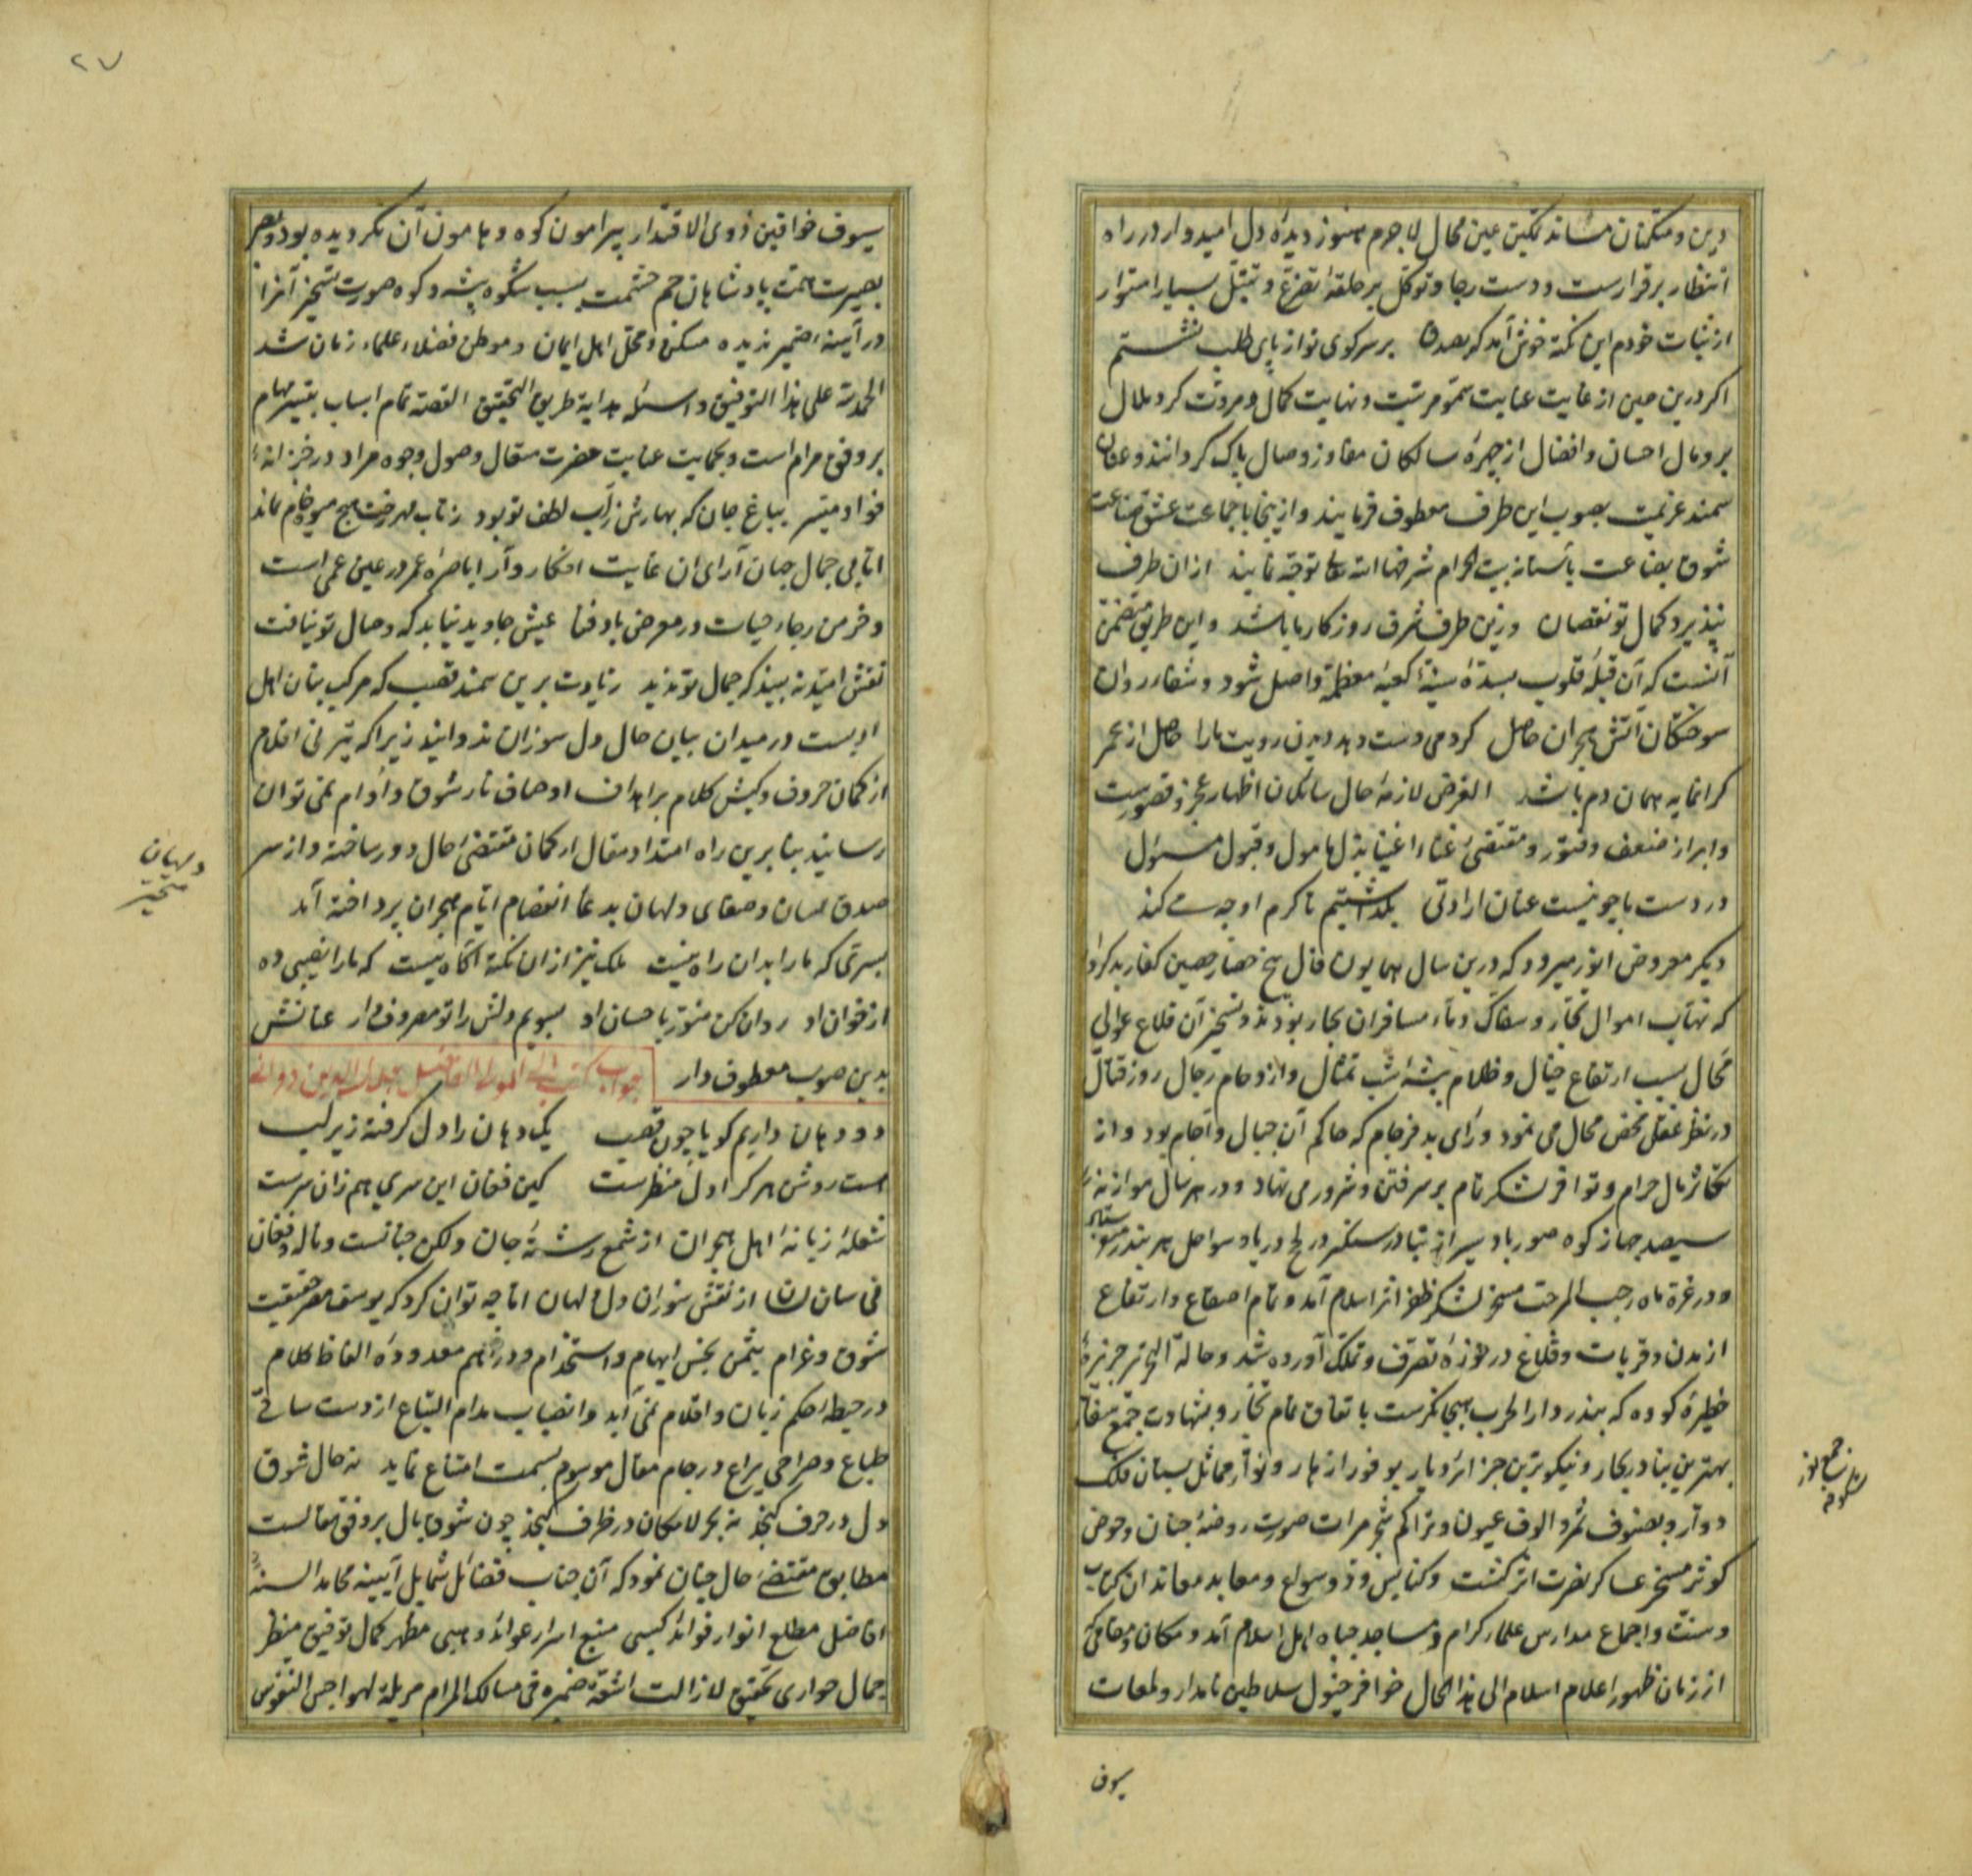 درین و متمکنان مساند تمکین عین محال لاجرم هنوز دیدهٔ دل امیدوار در راه
انتظار برقرارست و دست رجا و توکل بر حلقهٔ تضرع و تبتل بسیار استوار
از ثبات خودم این نکته خوش آمد که بصد بر سر کوی تو از پای طلب ننشستم
اگر درین حین از غایت عنایت سمو مرتبت و نهایت کمال و مروت گرد ملال
بر و مال احسان و افضال از چهرهٔ سالکان مفاوز وصال پاک گردانند و عنان
سمند عزیمت بصوب این طرف معطوف فرمایند و ازینجا با جماعت عشق صناعت
شوق بضاعت بآستانه بیت الحرام شرفها الله تعالی توجه نمایند از آن طرف
نپذیرد کمال تو نقصان وزین طرف شرف روزگار ما باشد و این طریق متضمن
آنست که آن قبلهٔ قلوب بسدهٔ سنیهٔ کعبهٔ معظمه واصل شود و شفاء روان
سوختگان آتش هجران حاصل گر دمی دست دهد دیدن رویت ما را حاصل از عمر
گرانمایه همان دم باشد الغرض لازمهٔ حال سائلان اظهار عجز و قصورست
و ابراز ضعف و فتور و مقتضی غناء اغنیا بذل مامول و قبول مسئول
در دست ما چو نیست عنان ارادتی بگذاشتیم تا کرم او چه می‌کند
دیگر معروض انور میرود که درین سال همایون فال پنج حصار حصین کفار بدکردار
که نهاب اموال تجار و سفاک دماء مسافران بحار بودند و تسخیر آن قلاع عوالی
محال بسبب ارتفاع جبال و ظلام بیشهٔ شب تمثال و ازدحام رجال روز قتال
در نظر عقل محض محال می نمود و رای بد فرجام که حاکم آن جبال و آجام بود و از
تکاثر مال حرام و توافر لشکر تام بر سر فتن و شرور می نهاد و در هر سال موازنه
سیصد جهاز کوه صور باد سیر از بنادر سنگیسر در لج دریا و سواحل هر بندر
و در غرهٔ ماه رجب المرجب مسخر لشکر ظفر اثر اسلام آمد و تمام اصقاع و ارتفاع
از مدن و قریات و قلاع در حوزهٔ تصرف و تملک آورده شد و حالة التحریر جزیرهٔ
خطیرهٔ کووه که بندر دار الحرب بیجانگرست باتفاق تمام تجار و بشهادت جمع سفار
بهترین بنادر بحار و نیکوترین جزائر و دیار بوفور ازهار و نوار مماثل بستان فلک
دوار و بصنوف ثمر و الوف عیون و تراکم شجر مرات صورت روضهٔ جنان و حوض
کوثر مسخر عساکر نصرت اثر گشت و کنایس و ذو سواع و معابد معاندان کتاب
و سنت و اجماع مدارس علماء کرام و مساجد جباه اهل اسلام آمد و مکان و مقامی که
از زمان ظهور اعلام اسلام الی هذا الحال حوافر خیول سلاطین نامدار و لمعات
سیوف
۲۷
سیوف خواقین ذوی الاقتدار پیرامون کوه و هامون آن نگردیده بود و بصر
بصیرت همت پادشاهان جم حشمت بسبب شکوه بیشه و کوه صورت تسخیر آنرا
در آیینهٔ ضمیر ندیده مسکن و محل اهل ایمان و موطن فضلاء علماء زمان شد
الحمد لله علی هذا التوفیق و اسئله هدایة طریق التحقیق القصه تمام اسباب تیسیر مهام
بر وفق مرام است و بحمایت عنایت حضرت متعال وصول وجوه مراد در خزانهٔ
فواد میسر بباغ جان که بهارش ز آب لطف تو بود ز تاب مهر رخت هیچ میوه خام نماند
اما بی جمال جهان آرای آن غایت افکار و آرا باصرهٔ عمر در عین عمی است
و خرمن رجاء حیات در معرض باد فنا عیش جاوید نیابد که وصال تو نیافت
نقش امید نه بیند که جمال تو ندید زیادت برین سمند قصب که مرکب بنان اهل
ادبست در میدان بیان حال دل سوزان ندوانید زیرا که تیر نی اقلام
از کمان حروف و کیش کلام بر اهداف اوصاف نار شوق و اوام نمی توان
رسانید بنابرین راه امتداد مقال از کمان مقتضی حال دور ساخته و از سر
صدق لسان و صفای ولهان بدعاء انفصام ایام هجران پرداخته آمد
بسرّی که ما را بدان راه نیست ملک نیز از آن نکته آگاه نیست که ما را نصیبی ده
از خوان او روان کن منور باحسان او بسویم دلش را تو مصروف دار عنانش
بدین صوب معطوف دار جواب کتب الی المولی الفاضل جلال الدین دوانی
دو دهان داریم گویا چون قصب یک دهان را دل گرفته زیر لب
هست روشن هر کرا دل منظرست کین فغان این سری هم زان سرست
شعلهٔ زبانهٔ اهل هجران از شمع رشتهٔ جان و لکن جنانست و ناله و فغان
فی سان لسان از نفس سوزان دل ولهان اما چه توان کرد که یوسف مصر حقیقت
شوق و غرام بثمن بخس ایهام و استخدام و دراهم معدودهٔ الفاظ کلام
در حیطهٔ حکم زبان و اقلام نمی آید و انصباب مدام التیاع از دست ساقی
طباع و صراحی یراع در جام مقال موسوم بسمت امتناع نماید نه حال شوق
دل در حرف گنجد نه بحر لامکان در ظرف گنجد چون شوق بال بر وفق مقالست
مطابق مقتضی حال چنان نمود که آن جناب فضائل شمایل آیینه محامد السنهٔ
افاضل مطلع انوار فوائد کسبی منبع اسرار عواید وهبی مظهر کمال توفیق منظر
جمال حواری تحقیق لازالت اشعة ضمیره فی مسالک المرام مزیلة لهواجس النفوس
ولهان
متحیر